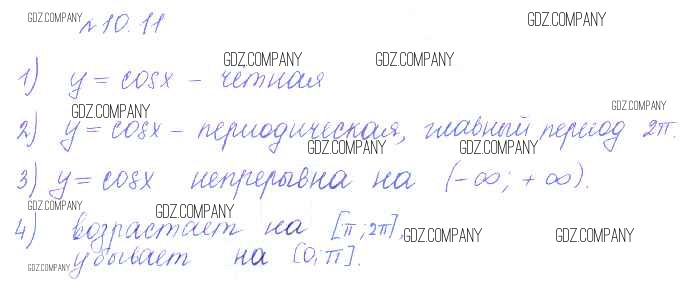 GDZ.COMPANY
№10.11
GDZ.COMPANY
GDZ.COMPANY GDZ.COMPANY
1) y = cosx – чётная
GDZ.COMPANY GDZ.COMPANY
2) y = cosx – периодическая, главный период 2π.
GDZ.COMPANY GDZ.COMPANY
3) y = cosx непрерывна на (-∞; +∞).
GDZ.COMPANY GDZ.COMPANY
4) возрастает на [π; 2π],
GDZ.COMPANY GDZ.COMPANY
убывает на [0; π].
GDZ.COMPANY